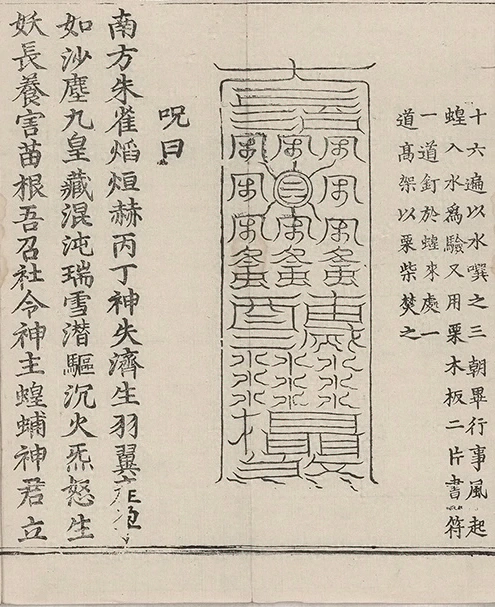 十六遍以水噀之三朝畢行事風起
蝗入水爲驗又用栗木板二片書符
一道釘於蝗來處一
道髙架以栗柴焚之
呪曰
南方朱雀熖烜赫丙丁神失濟生羽翼
如沙塵九皇藏混沌瑞雪潜驅沉火炁怒生
妖長養害苗根吾召社令神主蝗蝻神君立